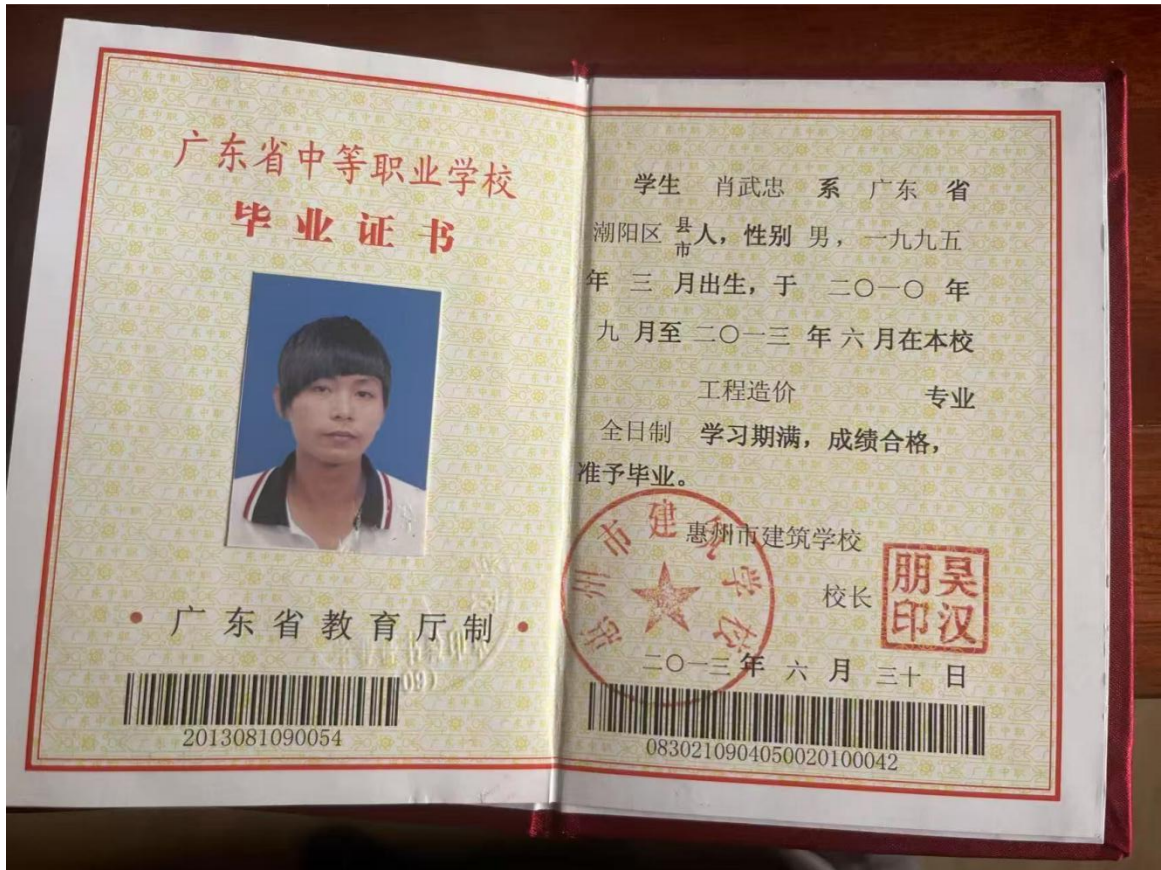 广东省中等职业学校
毕业证书
• 广东省教育厅制 •
2013081090054
学生 肖武忠 系 广东 省
潮阳区 县市 人，性别 男，一九九五
年 三 月出生，于 二〇一〇 年
九 月至 二〇一三 年 六 月在本校
工程造价 专业
全日制 学习期满，成绩合格，
准予毕业。
惠州市建筑学校
惠州市建筑学校
校长
吴汉朋印
二〇一三 年 六 月 三十 日
083021090405002010004​2